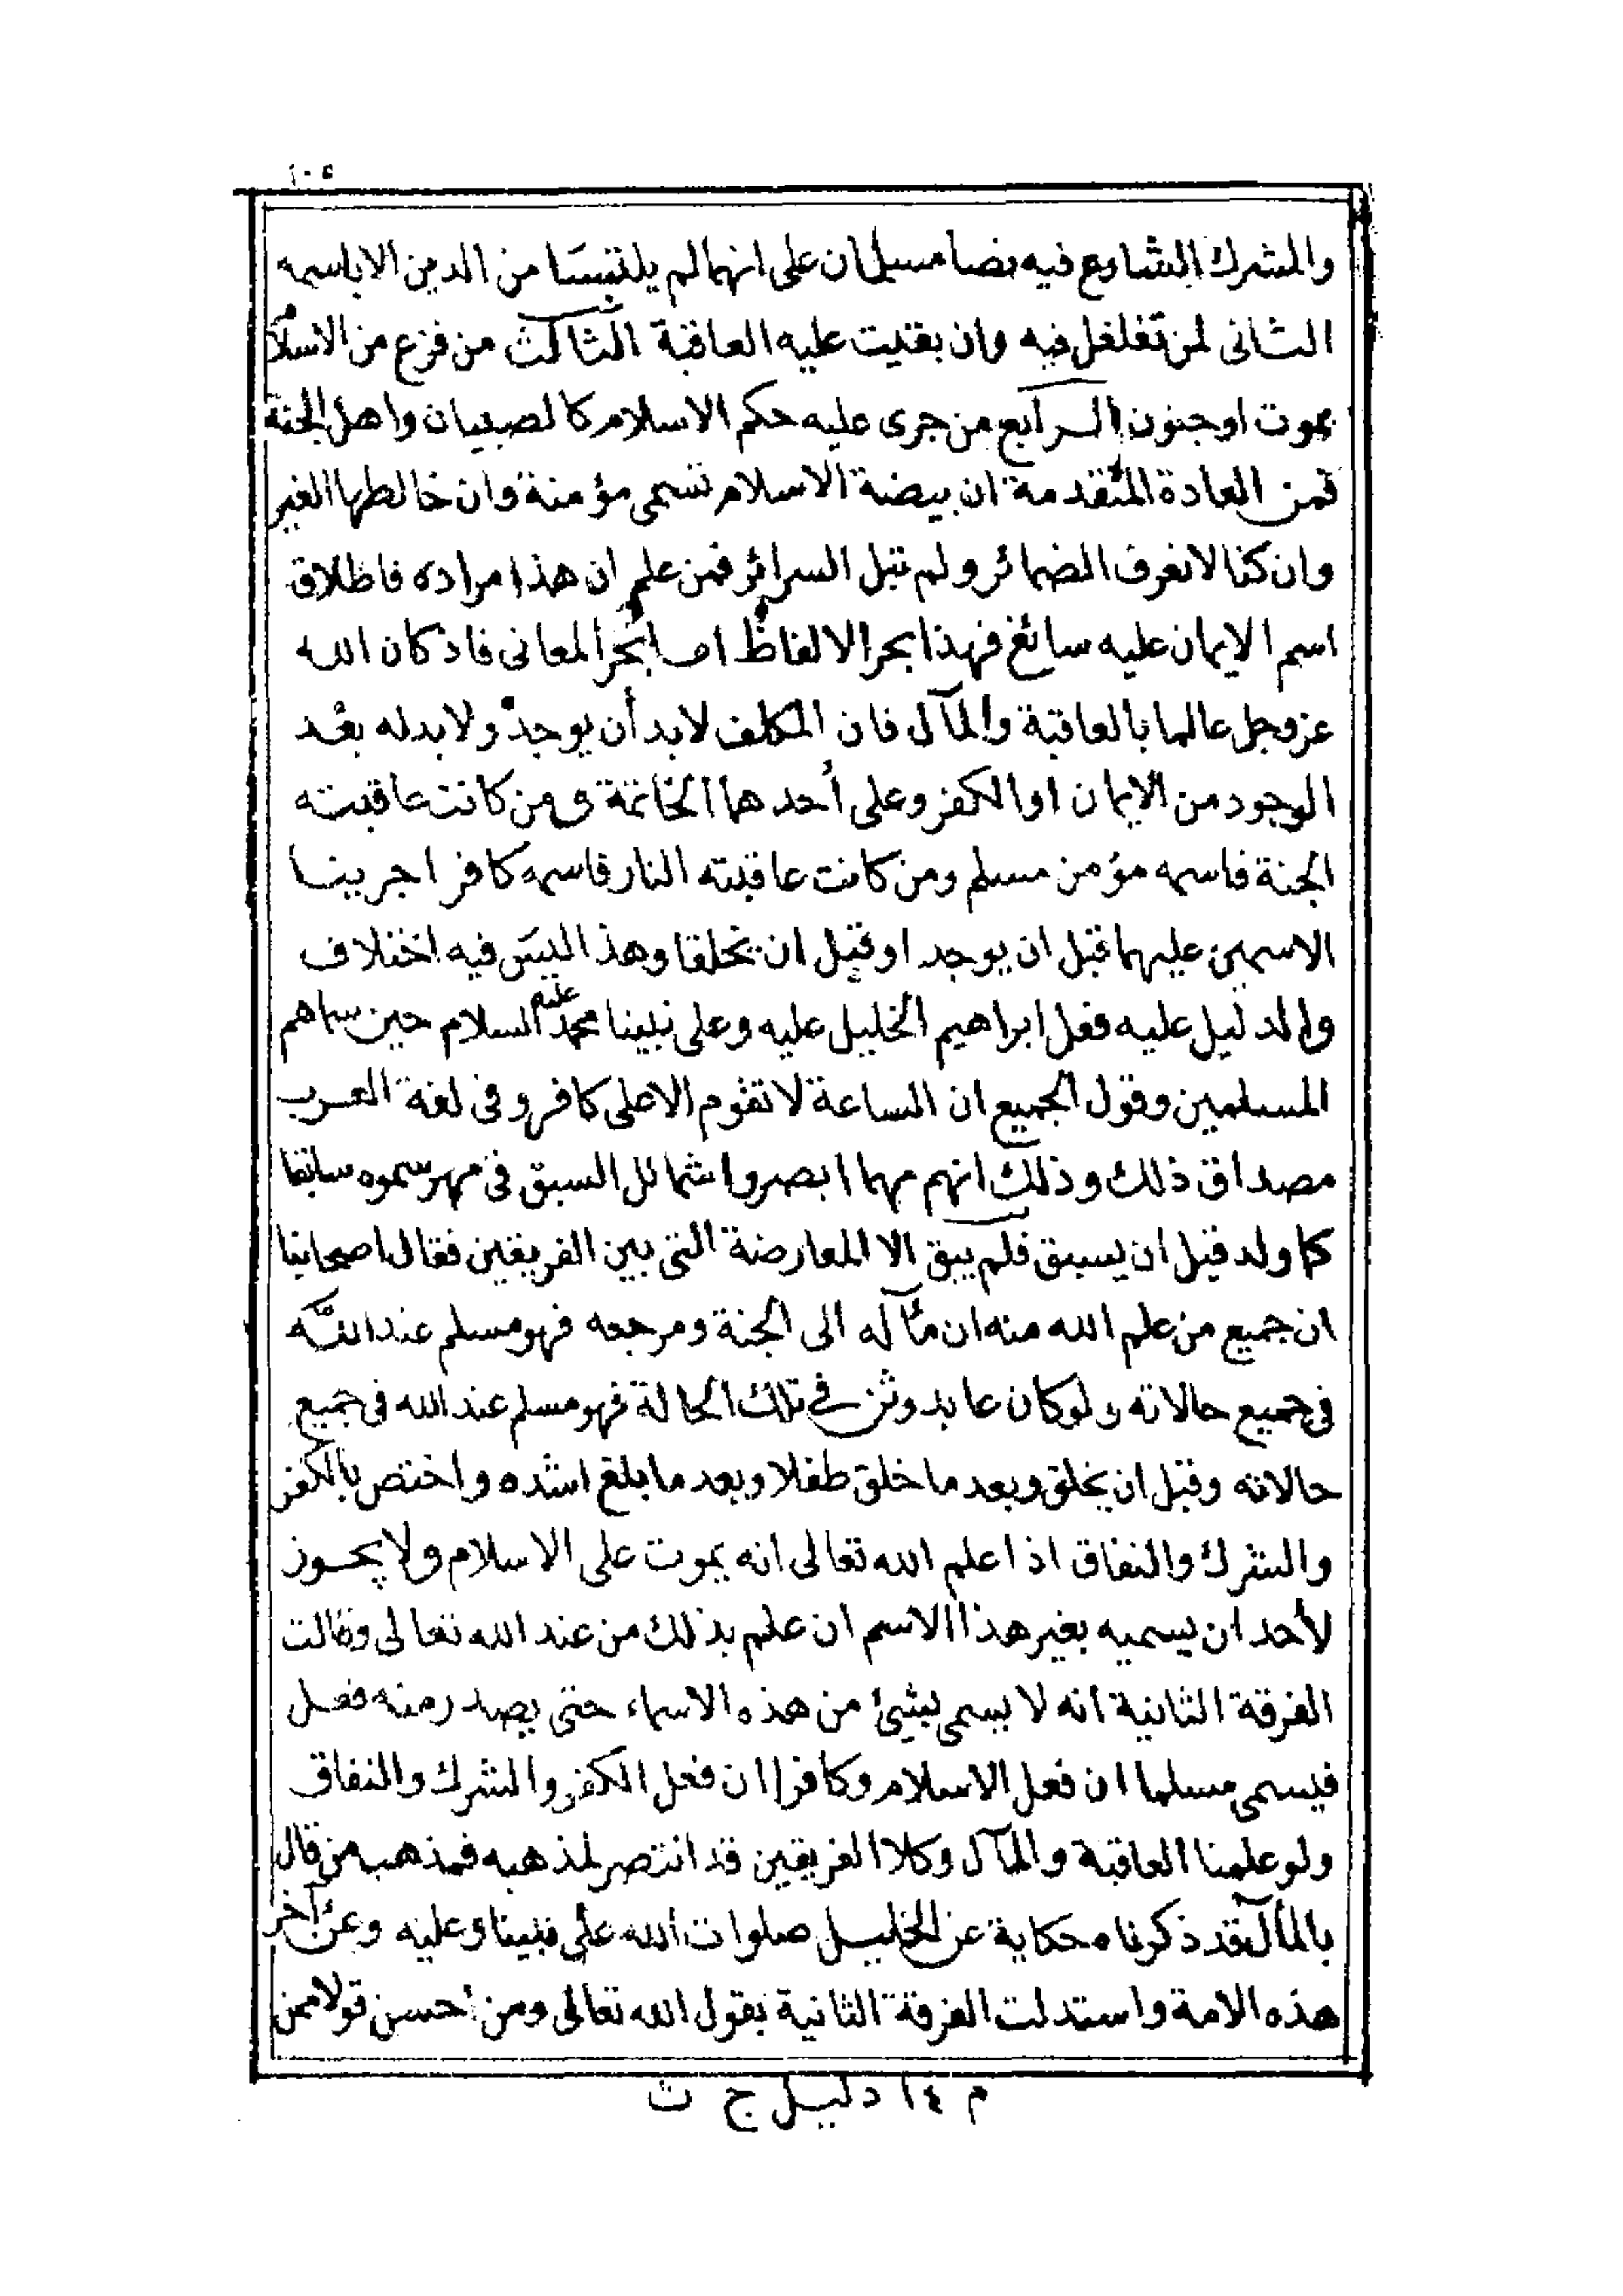 ١٠٥
والمشرك الشارع فيه يضا مسلمان على انهما لم يلتبسا من الدين الا باسمه
الثانى لمن تغلغل فيه وان بقيت عليه العاقبة الثالث من فرغ من الاسلام
بموت او جنون الرابع من جرى عليه حكم الاسلام كالصبيان واهل الجنة
فمن العادة المتقدمة ان بيضة الاسلام تسمى مؤمنة وان خالطها الغير
وان كنا لا نعرف الضمائر ولم تبل السرائر فمن علم ان هذا مراده فاطلاق
اسم الايمان عليه سائغ فهذا بحر الالفاظ اما بحر المعانى فاذ كان الله
عزوجل عالما بالعاقبة والمآل فان المكلف لابد أن يوجد ولا بد له بعد
الوجود من الايمان او الكفر وعلى أحدهما الخاتمة فمن كانت عاقبته
الجنة فاسمه مؤمن مسلم ومن كانت عاقبته النار فاسمه كافر اجرينا
الاسمين عليهما قبل ان يوجد او قبل ان يخلقا وهذا ليس فيه اختلاف
والدليل عليه فعل ابراهيم الخليل عليه وعلى نبينا محمد عليه السلام حين سماهم
المسلمين وقول الجميع ان الساعة لا تقوم الا على كافر وفى لغة العرب
مصداق ذلك وذلك انهم مهما ابصروا شمائل السبق فى مهر سموه سابقا
كما ولد قبل ان يسبق فلم يبق الا المعارضة التى بين الفريقين فقال اصحابنا
ان جميع من علم الله منه ان مآله الى الجنة ومرجعه فهو مسلم عند الله
فى جميع حالاته ولو كان عابد وثن فى تلك الحالة فهو مسلم عند الله فى جميع
حالاته وقبل ان يخلق وبعد ما خلق طفلا وبعد ما بلغ اشده واختص بالكفر
والشرك والنفاق اذا علم الله تعالى انه يموت على الاسلام ولا يجوز
لأحد ان يسميه بغير هذا الاسم ان علم بذلك من عند الله تعالى وقالت
الفرقة الثانية انه لا يسمى بشئ من هذه الاسماء حتى يصدر منه فعل
فيسمى مسلما ان فعل الاسلام وكافرا ان فعل الكفر والشرك والنفاق
ولو علمنا العاقبة والمآل وكلا الفريقين قد انتصر لمذهبه فمذهب من قال
بالمآل قد ذكرناه حكاية عن الخليل صلوات الله على نبينا وعليه وعن آخر
هذه الامة واستدلت الفرقة الثانية بقول الله تعالى ومن احسن قولا ممن
م ١٤ دليل ج ث